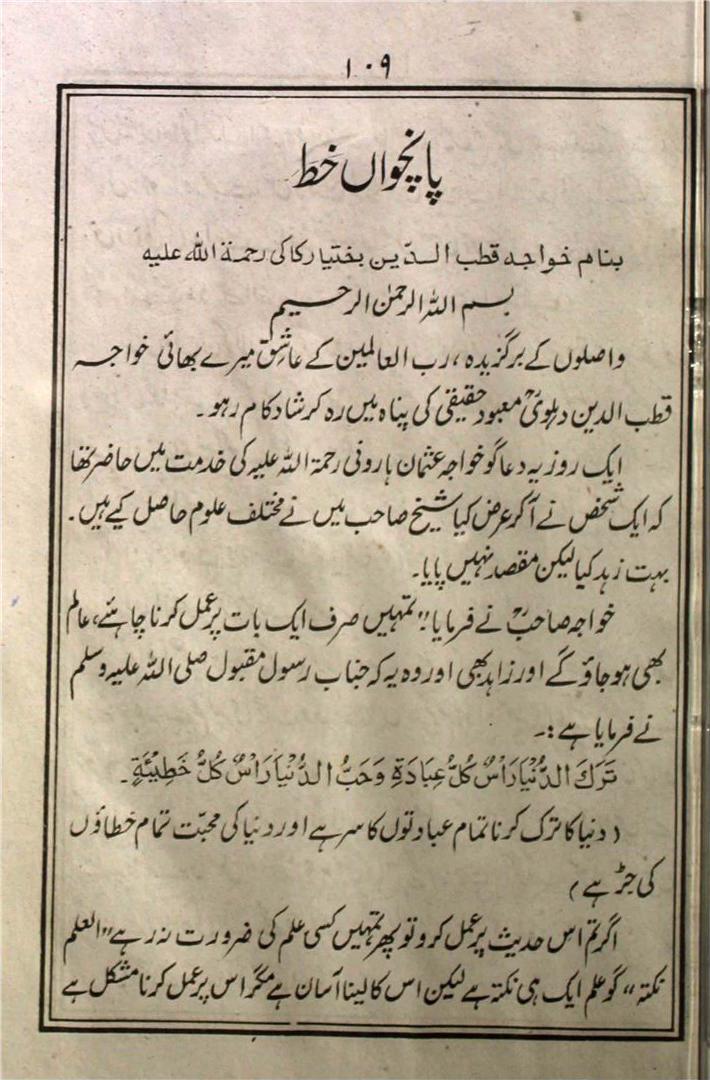 ۱۰۹
پانچواں خط
بنام خواجہ قطب الدّین بختیار کاکی رحمۃ اللہ علیہ
بسم اللہ الرحمٰن الرحیم
واصلوں کے برگزیدہ، رب العالمین کے عاشق میرے بھائی خواجہ
قطب الدین دہلویؒ معبود حقیقی کی پناہ میں رہ کر شاد کام رہو۔
ایک روز یہ دعا گو خواجہ عثمان ہارونی رحمۃ اللہ علیہ کی خدمت میں حاضر تھا
کہ ایک شخص نے آکر عرض کیا شیخ صاحب میں نے مختلف علوم حاصل کیے ہیں۔
بہت زہد کیا لیکن مقصد نہیں پایا۔
خواجہ صاحبؒ نے فرمایا "تمہیں صرف ایک بات پر عمل کرنا چاہئے، عالم
بھی ہو جاؤ گے اور زاہد بھی اور وہ یہ کہ جناب رسول مقبول صلی اللہ علیہ وسلم
نے فرمایا ہے:۔
تَرَكَ الدُّنْيَا رَاْسُ كُلِّ عِبَادَةٍ وَحَبُّ الدُّنْيَا رَاْسُ كُلِّ خَطِيْئَةٍ۔
( دنیا کا ترک کرنا تمام عبادتوں کا سر ہے اور دنیا کی محبّت تمام خطاؤں
کی جڑ ہے )
اگر تم اس حدیث پر عمل کرو تو پھر تمہیں کسی علم کی ضرورت نہ رہے "العلم
نکتہ" گو علم ایک ہی نکتہ ہے لیکن اس کا لینا آسان ہے مگر اس پر عمل کرنا مشکل ہے